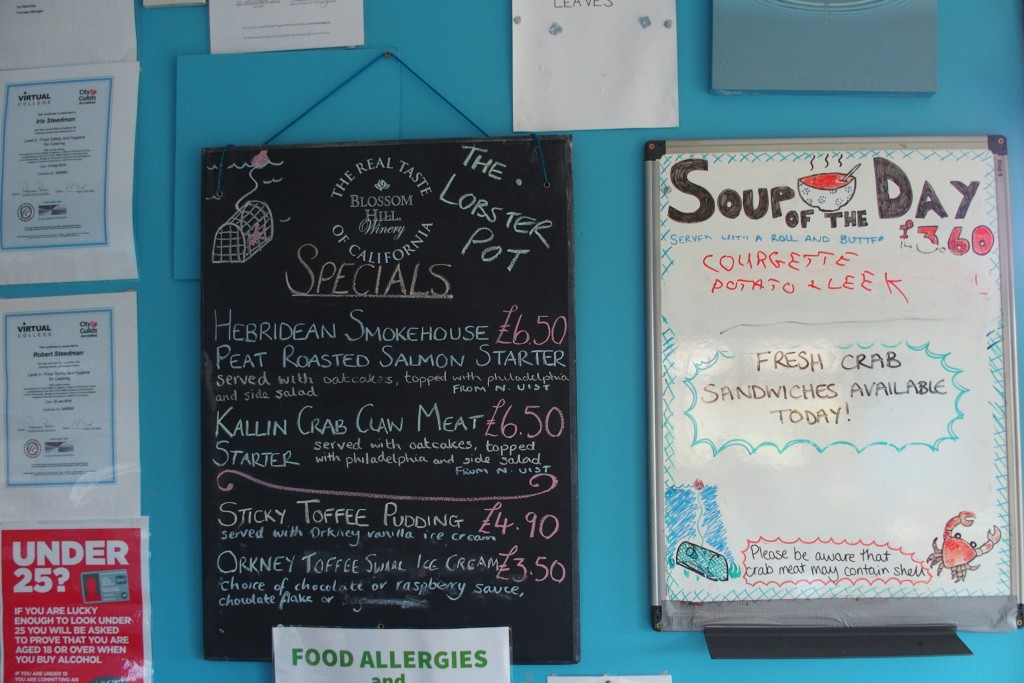 LEAVES
VIRTUAL
COLLEGE
City&
Guilds
Accredited
Iris Steedman
Level 2 - Food Safety and Hygiene
for Catering
VIRTUAL
COLLEGE
City&
Guilds
Accredited
Robert Steedman
Level 2 - Food Safety and Hygiene
for Catering
UNDER
25?
IF YOU ARE LUCKY
ENOUGH TO LOOK UNDER
25 YOU WILL BE ASKED
TO PROVE THAT YOU ARE
AGED 18 OR OVER WHEN
YOU BUY ALCOHOL
IF YOU ARE UNDER 18
YOU ARE COMMITTING AN
THE REAL TASTE
BLOSSOM
HILL
Winery
OF CALIFORNIA
THE
LOBSTER
POT
SPECIALS
HEBRIDEAN SMOKEHOUSE £6.50
PEAT ROASTED SALMON STARTER
served with oatcakes, topped with philadelphia
and side salad FROM N. UIST
KALLIN CRAB CLAW MEAT £6.50
STARTER served with oatcakes, topped
with philadelphia and side salad
FROM N. UIST
STICKY TOFFEE PUDDING £4.90
served with Orkney vanilla ice cream
ORKNEY TOFFEE SWIRL ICE CREAM £3.50
choice of chocolate or raspberry sauce,
chocolate flake or
FOOD ALLERGIES
and
SOUP OF THE DAY
SERVED WITH A ROLL AND BUTTER £3.60
COURGETTE
POTATO & LEEK
FRESH CRAB
SANDWICHES AVAILABLE
TODAY!
Please be aware that
crab meat may contain shell